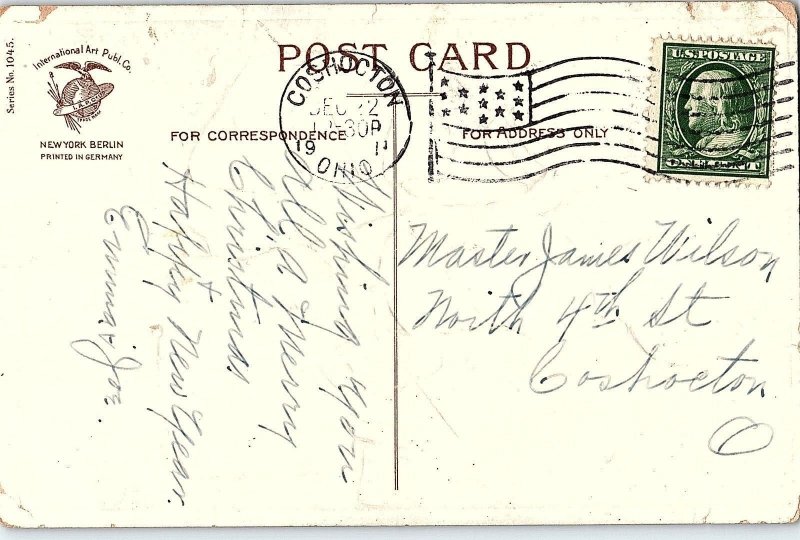 Series No. 1045.
International Art Publ. Co.
I.A.P.Co.
TRADE MARK
NEW YORK BERLIN
PRINTED IN GERMANY
POST CARD
FOR CORRESPONDENCE
FOR ADDRESS ONLY
COSHOCTON
DEC 22
30P
1911
OHIO
U.S. POSTAGE
Wishing you
all a Merry
Christmas
+ Happy New Year.
Emma + Joe.
Master James Wilson
North 4th St
Coshocton
O